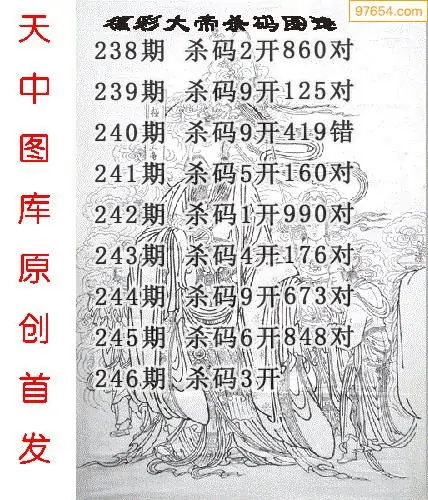 97654.com
福彩大帝杀码图迷
238期 杀码2开860对
239期 杀码9开125对
240期 杀码9开419错
241期 杀码5开160对
242期 杀码1开990对
243期 杀码4开176对
244期 杀码9开673对
245期 杀码6开848对
246期 杀码3开
天中图库原创首发